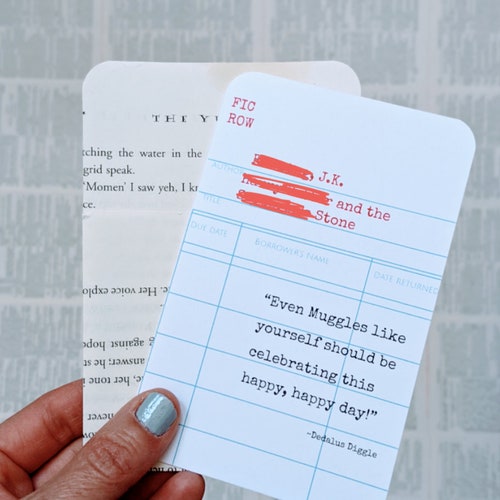 THE YU
tching the water in the
grid speak.
'Momen' I saw yeh, I kn
ce.
Her voice explo
against
answer; he st
her tone
never
FIC
ROW
AUTHOR
J.K.
and the
TITLE
Stone
DUE DATE
BORROWER'S NAME
DATE RETURNED
"Even Muggles like
yourself should be
celebrating this
happy, happy day!"
-Dedalus Diggle